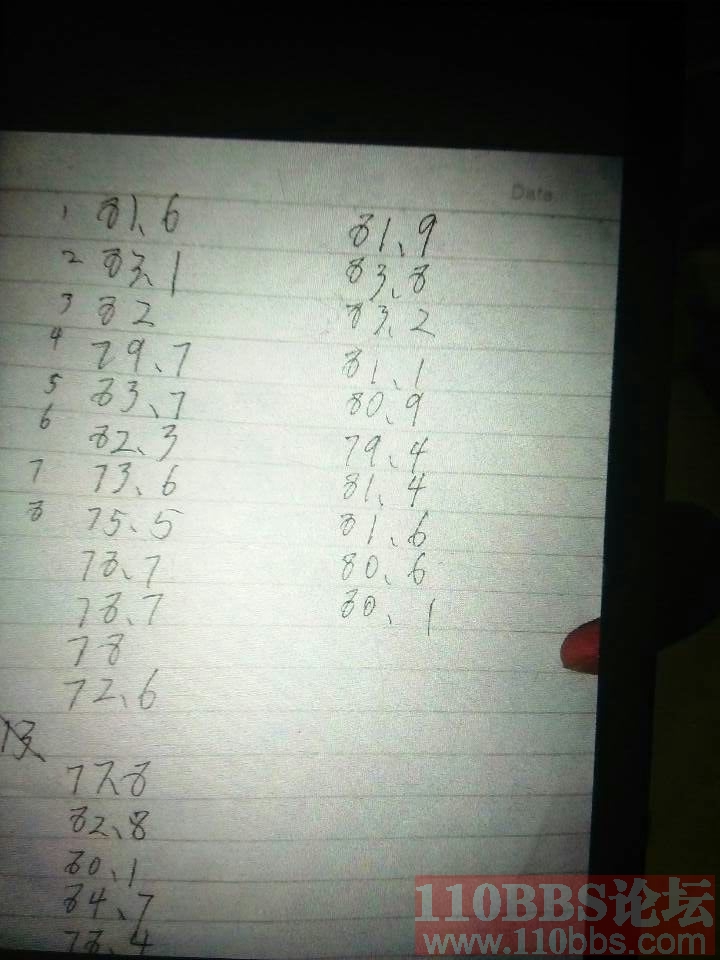 Date
1 81、6
2 83、1
3 82
4 79、7
5 83、7
6 82、3
7 73、6
8 75、5
78、7
78、7
78
72、6
77、8
82、8
80、1
84、7
78、4
81、9
83、8
83、2
81、1
80、9
79、4
81、4
81、6
80、6
80、1
110BBS论坛
www.110bbs.com